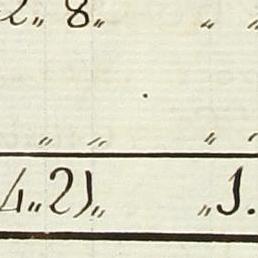 2„ 8„ „ „
„ „ „ „
4„2)„ „1.